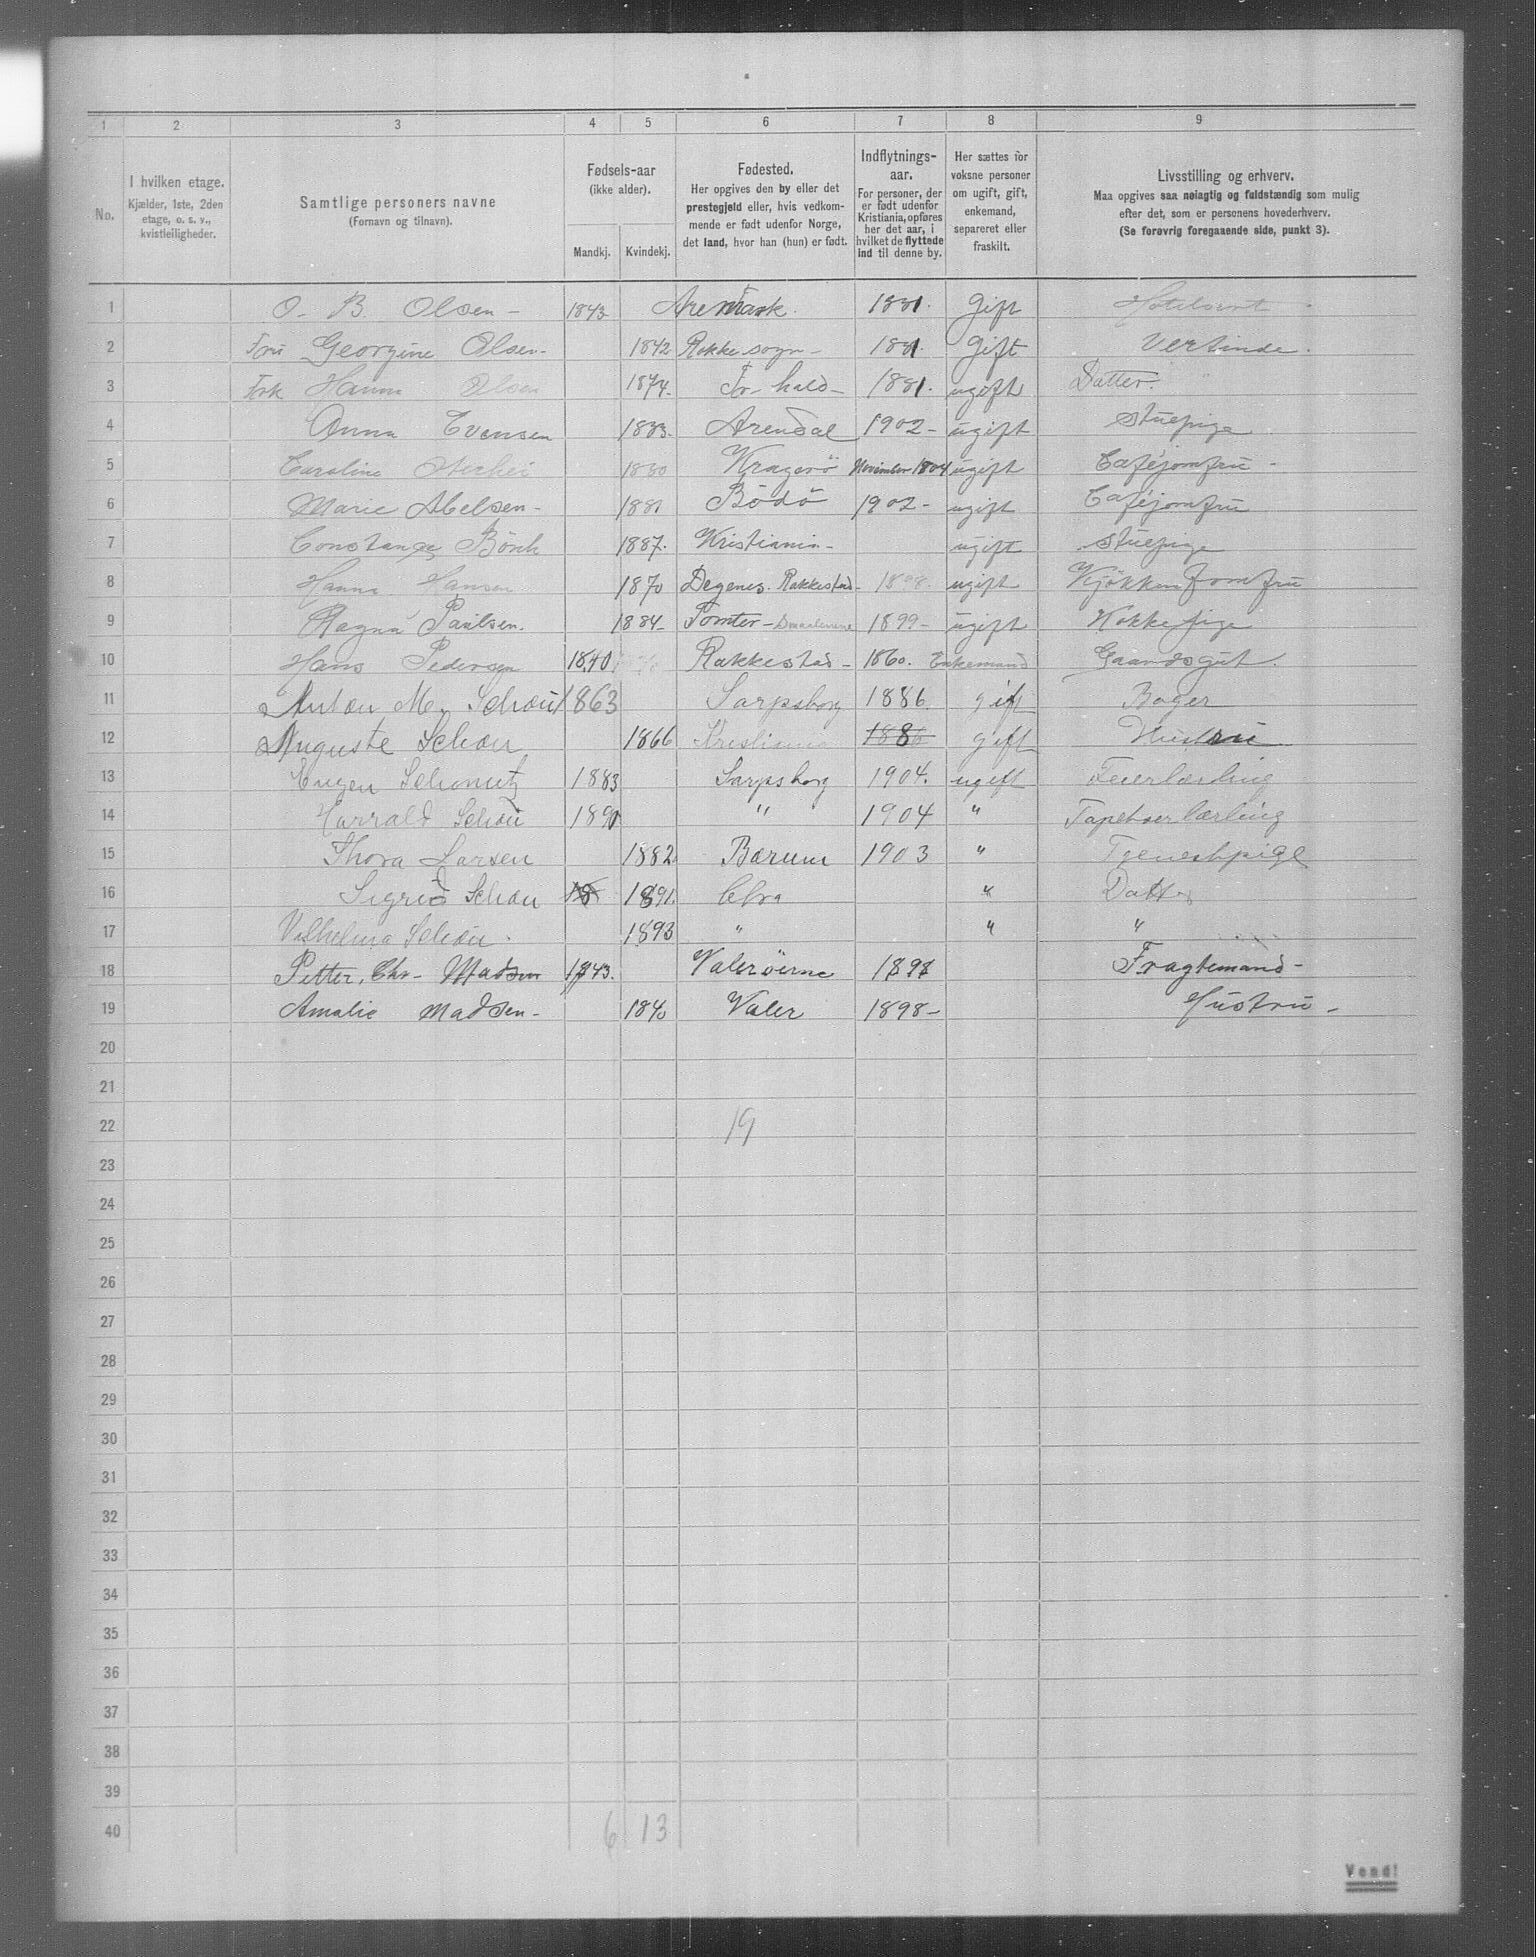 1 2 3 4 5 6 7 8 9
No. I hvilken etage. Kjælder, 1ste, 2den etage, o. s. v., kvistleiligheder. Samtlige personers navne (Fornavn og tilnavn). Fødsels-aar (ikke alder). Mandkj. Kvindekj. Fødested. Her opgives den by eller det prestegjeld eller, hvis vedkommende er født udenfor Norge, det land, hvor han (hun) er født. Indflytnings-aar. For personer, der er født udenfor Kristiania, opføres her det aar, i hvilket de flyttede ind til denne by. Her sættes for voksne personer om ugift, gift, enkemand, separeret eller fraskilt. Livsstilling og erhverv. Maa opgives saa nøiagtig og fuldstændig som mulig efter det, som er personens hovederhverv. (Se forøvrig foregaaende side, punkt 3).
1 O. B. Olsen - 1843 Aremark. 1881. Gift Hotelvert
2 Fru Georgine Olsen - 1842 Rakke sogn - 1881. Gift Vertinde.
3 Frk Hanna Olsen 1874. Fr. hald - 1881. ugift Datter.
4 Anna Evensen 1883. Arendal 1902 - ugift Stuepige
5 Caroline 1880 Kragerö November 1904 ugift Caféjomfru -
6 Marie Abelsen - 1881 Bödö 1902 - ugift Caféjomfru
7 Constanse Bönk 1887. Kristiania - ugift Stuepige
8 Hanna Hansen 1870 Degenes. Rakkestad - 1898. ugift Kjökkenjomfru
9 Ragna Paulsen. 1884 - Tomter - Smaalenene 1899 - ugift Kokkepige
10 Hans Pedersen 1840 Rakkestad - 1860. Enkemand Gaardsgut.
11 Anton M. Schou 1863 Sarpsborg 1886. gift Bager
12 Auguste Schou 1866 Kristiania 1886 gift Hustru
13 Eugen 1883 Sarpsborg 1904. ugift Feierlærling
14 Harrald Schou 1890 " 1904 " Tapetserlærling
15 Thora Larsen 1882 Bærum 1903 " Tjenestpige
16 Sigrid Schou 18 1891. Chra " Datter
17 Vilhelma Schou. 1893 " " "
18 Petter, Chr - Madsen 1843. Valerøerne 1898 Fragtemand -
19 Amalie Madsen - 1840 Valer 1898 - Hustru -
20
21
22 19
23
24
25
26
27
28
29
30
31
32
33
34
35
36
37
38
39
40 6 13
Vend!